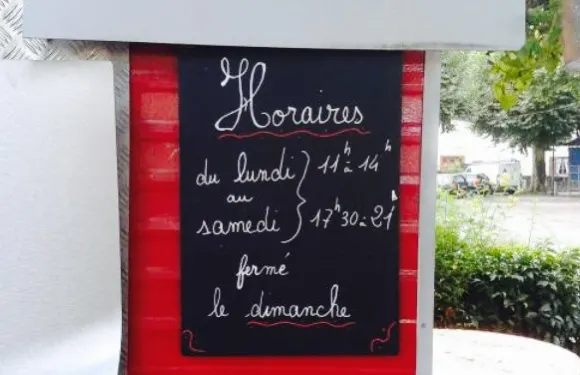 Horaires
du lundi
au
samedi
11h à 14h
17h30 à 21h
fermé
le dimanche